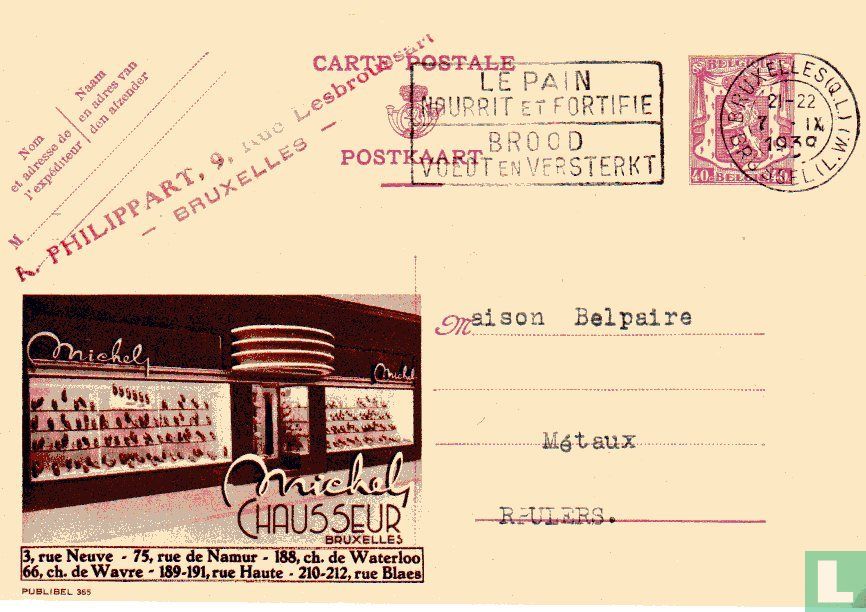 CARTE POSTALE
POSTKAART
LE PAIN
NOURRIT ET FORTIFIE
BROOD
VOEDT EN VERSTERKT
BELGIE
40c BELGI
BRUXELLES (Q.L.)
21-22
7 - IX
1939
BRUSSEL (L.W.)
Nom
et adresse de
l'expéditeur
Naam
en adres van
den afzender
M
PHILIPPART, 9, Rue Lesbroussart
— BRUXELLES —
Michel
Michel
Michel
CHAUSSEUR
BRUXELLES
3, rue Neuve - 75, rue de Namur - 188, ch. de Waterloo
66, ch. de Wavre - 189-191, rue Haute - 210-212, rue Blaes
PUBLIBEL 365
Maison Belpaire
Métaux
L